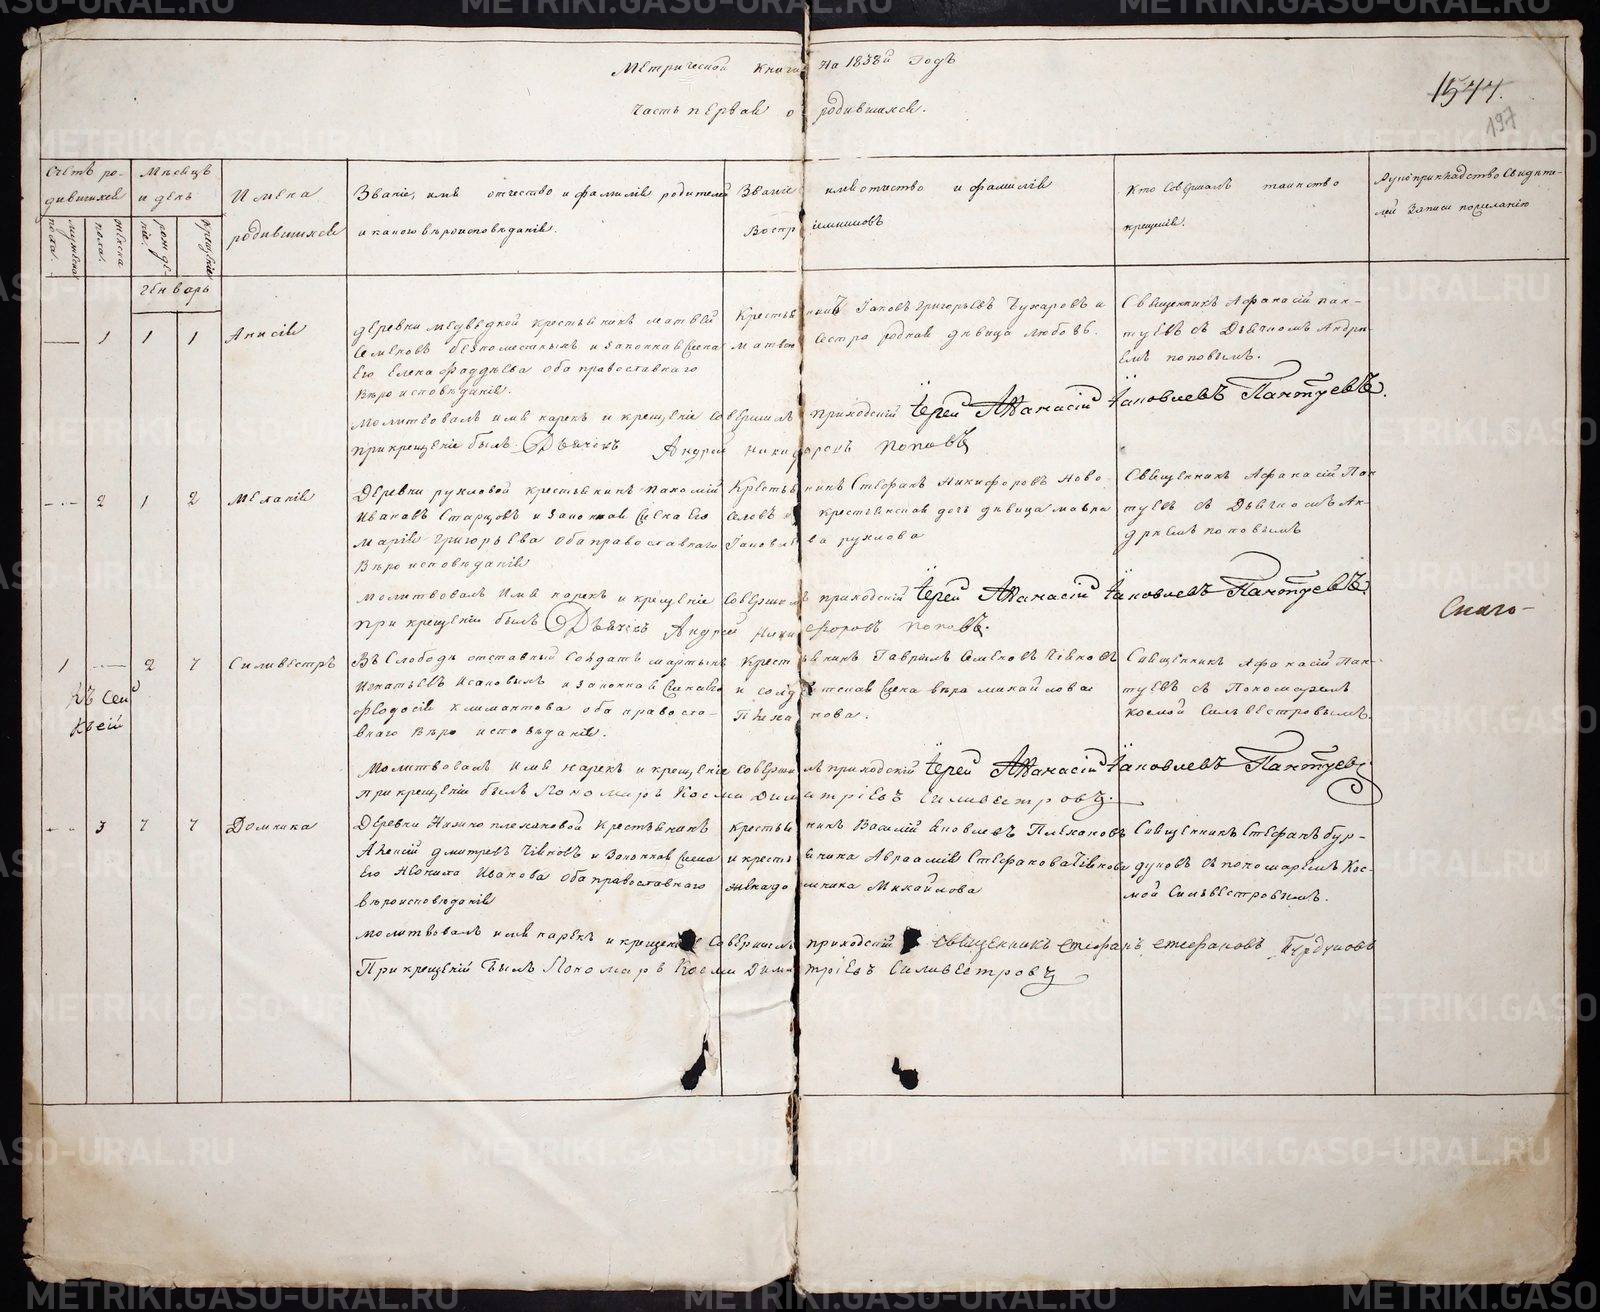 Метрической Книги на 1838й Годъ
1544.
Часть первая о родившихся.
197
Счетъ родившихся
Мѣсяцъ и день
Имена родившихся
Званіе, имя отчество и фамилія родителей и какого вѣроисповѣданія.
Званіе имя отчество и фамилія
Воспріемниковъ
Кто совершалъ таинство крещенія.
Рукоприкладство Свидѣтелей записи по желанію
мужеска пола.
женска пола.
рожденіе.
крещеніе
Генварь
1 1 1
Анисія
деревни медведкой крестьянинъ матвей
Семеновъ безпоместныхъ и законная жена
Его Елена Фаддѣева оба православнаго
Вѣроисповѣданія.
Крестьянинъ Іаковъ Григорьевъ Бухаровъ и
матвею сестра родная дѣвица любовь.
Священникъ Афанасій Пан-
туевъ съ Дьячкомъ Андре-
емъ поповымъ.
молитвовалъ имя нарекъ и крещеніе совершилъ приходскій Іерей Афанасій Іаковлевъ Пантуевъ.
при крещеніи былъ Дьячекъ Андрей Никифоровъ Поповъ
2 1 2
Меланія
Деревни рухловой крестьянинъ пахомій
Ивановъ Старцовъ и законная жена Его
марія григорьева оба православнаго
Вѣроисповѣданія
Крестьянинъ Стефанъ Никифоровъ Ново-
селовъ и крестьянская дочь дѣвица мавра
Іаковлева рухлова
Священникъ Афанасій Пан
туевъ съ Дьячкомъ Ан-
дреемъ поповымъ
молитвовалъ имя нарекъ и крещеніе совершилъ приходскій Іерей Афанасій Іаковлевъ Пантуевъ
при крещеніи былъ Дьячекъ Андрей Никифоровъ Поповъ.
1 2 7
Силивестръ
Въ Слободѣ отставный солдатъ мартынъ
Игнатьевъ Исаковыхъ и законная жена его
Феодосія климантова оба правосла-
внаго вѣроисповѣданія.
Крестьянинъ Гаврилъ Семеновъ Чѣяновъ
и солдатская жена вѣра михайлова
Священникъ Афанасій Пан-
туевъ съ Пономаремъ
космой Сильвестровымъ.
молитвовалъ имя нарекъ и крещеніе совершилъ приходскій Іерей Афанасій Іаковлевъ Пантуевъ
при крещеніи былъ Пономарь Косма Димитріевъ Силивестровъ.
3 7 7
Домника
Деревни Нижно плехановой крестьянинъ
Алексій дмитревъ и Законная жена
Его Неонила Иванова оба православнаго
вѣроисповѣданія
крестьянинъ Василій Яковлевъ Плехановъ
и крестьянина Авраамія Стефанова
жена домника Михайлова
Священникъ Стефанъ бур-
дуковъ съ пономаремъ Кос-
мой Сильвестровымъ.
молитвовалъ имя нарекъ и крещеніе Совершилъ приходскій священникъ стефанъ стефановъ Бурдуковъ
При крещеній былъ Пономарь Косма Димитріевъ Силивестровъ
METRIKI.GASO-URAL.RU